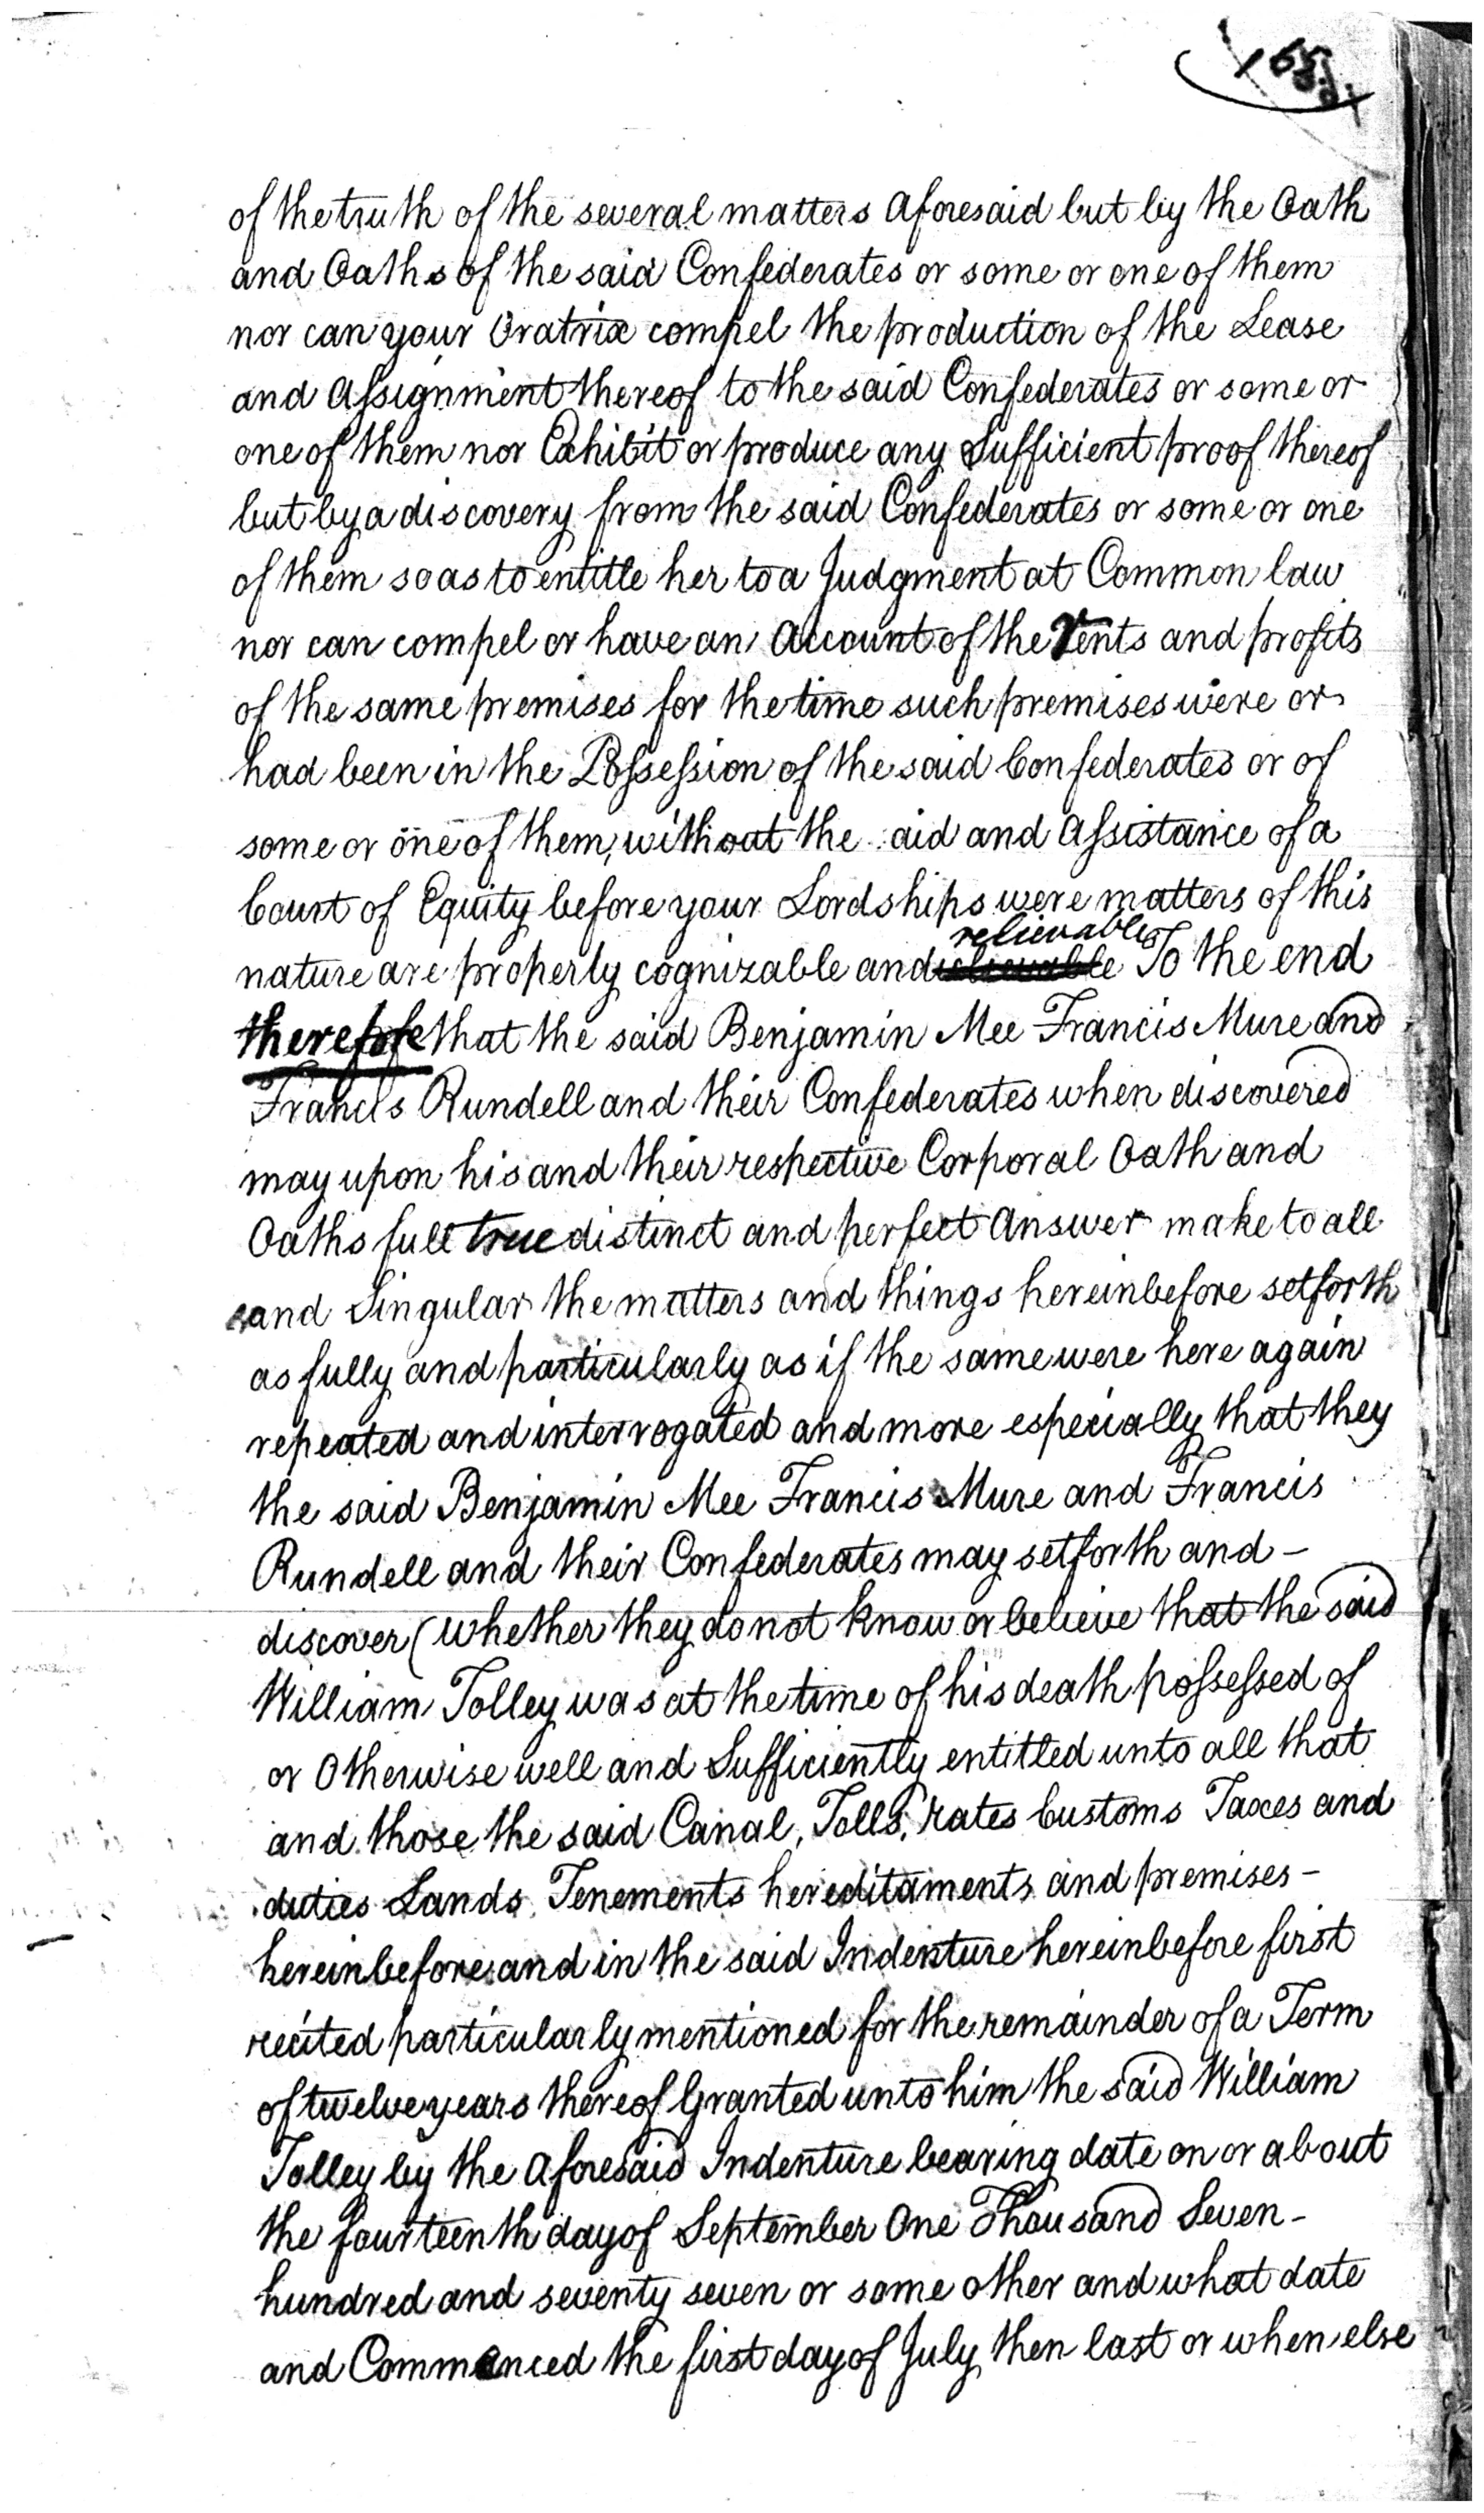 of the truth of the several matters aforesaid but by the Oath
and Oaths of the said Confederates or some or one of them
nor can your Oratrix compel the production of the Lease
and Assignment thereof to the said Confederates or some or
one of them nor Exhibit or produce any Sufficient proof thereof
but by a discovery from the said Confederates or some or one
of them so as to entitle her to a Judgment at Common law
nor can compel or have an Account of the rents and profits
of the same premises for the time such premises were or
had been in the Possession of the said Confederates or of
some or one of them, without the aid and Assistance of a
Court of Equity before your Lordships were matters of this
relievable
nature are properly cognizable and To the end
therefore that the said Benjamin Mee Francis Mure and
Francis Rundell and their Confederates when discovered
may upon his and their respective Corporal Oath and
Oaths full true distinct and perfect Answer make to all
and Singular the matters and things hereinbefore setforth
as fully and particularly as if the same were here again
repeated and interrogated and more especially that they
the said Benjamin Mee Francis Mure and Francis
Rundell and their Confederates may setforth and -
discover (whether they do not know or believe that the said
William Tolley was at the time of his death possessed of
or Otherwise well and Sufficiently entitled unto all that
and those the said Canal, Tolls, rates Customs Taxes and
duties Lands Tenements hereditaments and premises -
hereinbefore and in the said Indenture hereinbefore first
recited particularly mentioned for the remainder of a Term
of twelve years thereof Granted unto him the said William
Tolley by the Aforesaid Indenture bearing date on or about
the fourteenth day of September One Thousand Seven -
hundred and seventy seven or some other and what date
and Commenced the first day of July then last or when else